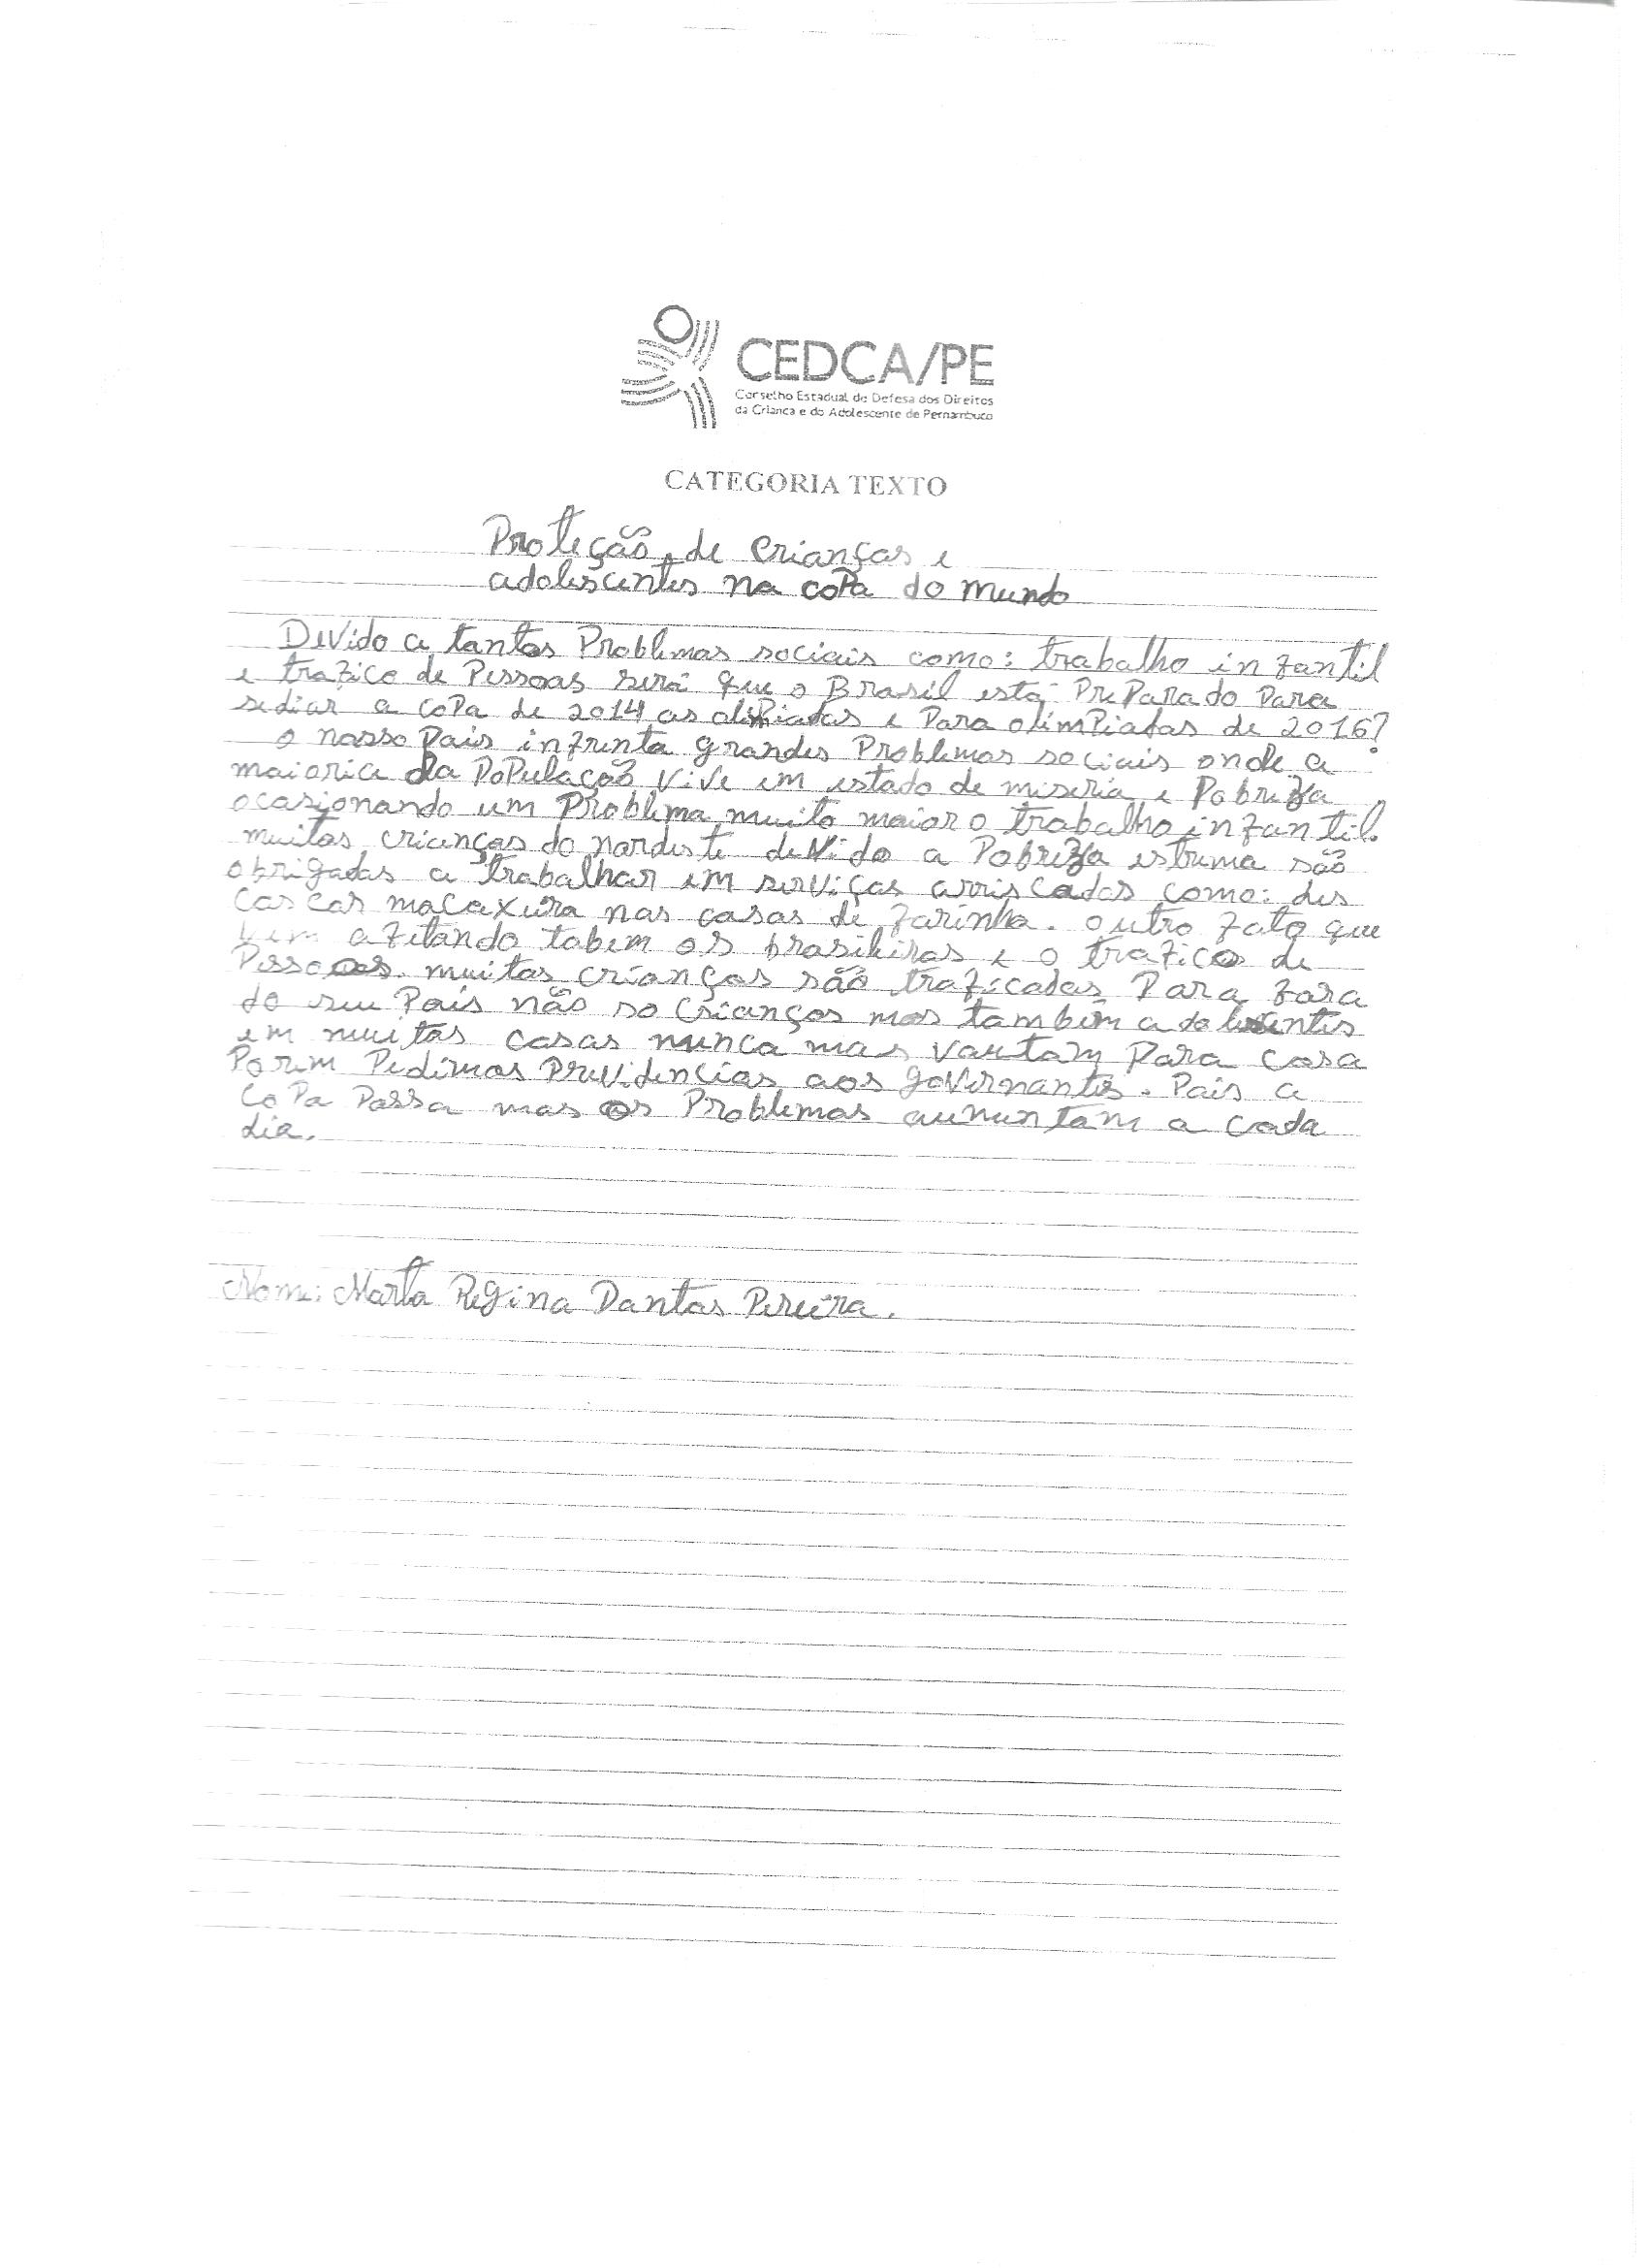 CEDCA/PE
Conselho Estadual de Defesa dos Direitos
da Criança e do Adolescente de Pernambuco
CATEGORIA TEXTO
Proteção de crianças e
adolescentes na copa do mundo
Devido a tantos Problemas sociais como: trabalho infantil
e trafico de Pessoas será que o Brasil está PreParado Para
sediar a coPa de 2014 as olimPiadas e Para olimPiadas de 2016?
o nosso Pais infrenta grandes Problemas sociais onde a
maioria da PoPulação vive em estado de miseria e Pobreza
ocasionando um Problema muito maior o trabalho infantil.
muitas crianças do nordeste devido a Pobreza estrema são
obrigadas a trabalhar em serviços arriscados como: des
cascar macaxeira nas casas de farinha. outro fato que
vem afetando tabem os brasileiros e o trafico de
Pessoas. muitas crianças são traficadas Para fora
do seu Pais não so crianças mas também adolescentes
em muitos casos nunca mas vautam Para casa
Porem Pedimos Previdencias aos governantes. Pois a
CoPa Passa mas os Problemas aumentam a cada
dia.
Nome: Marta Regina Dantas Pereira.